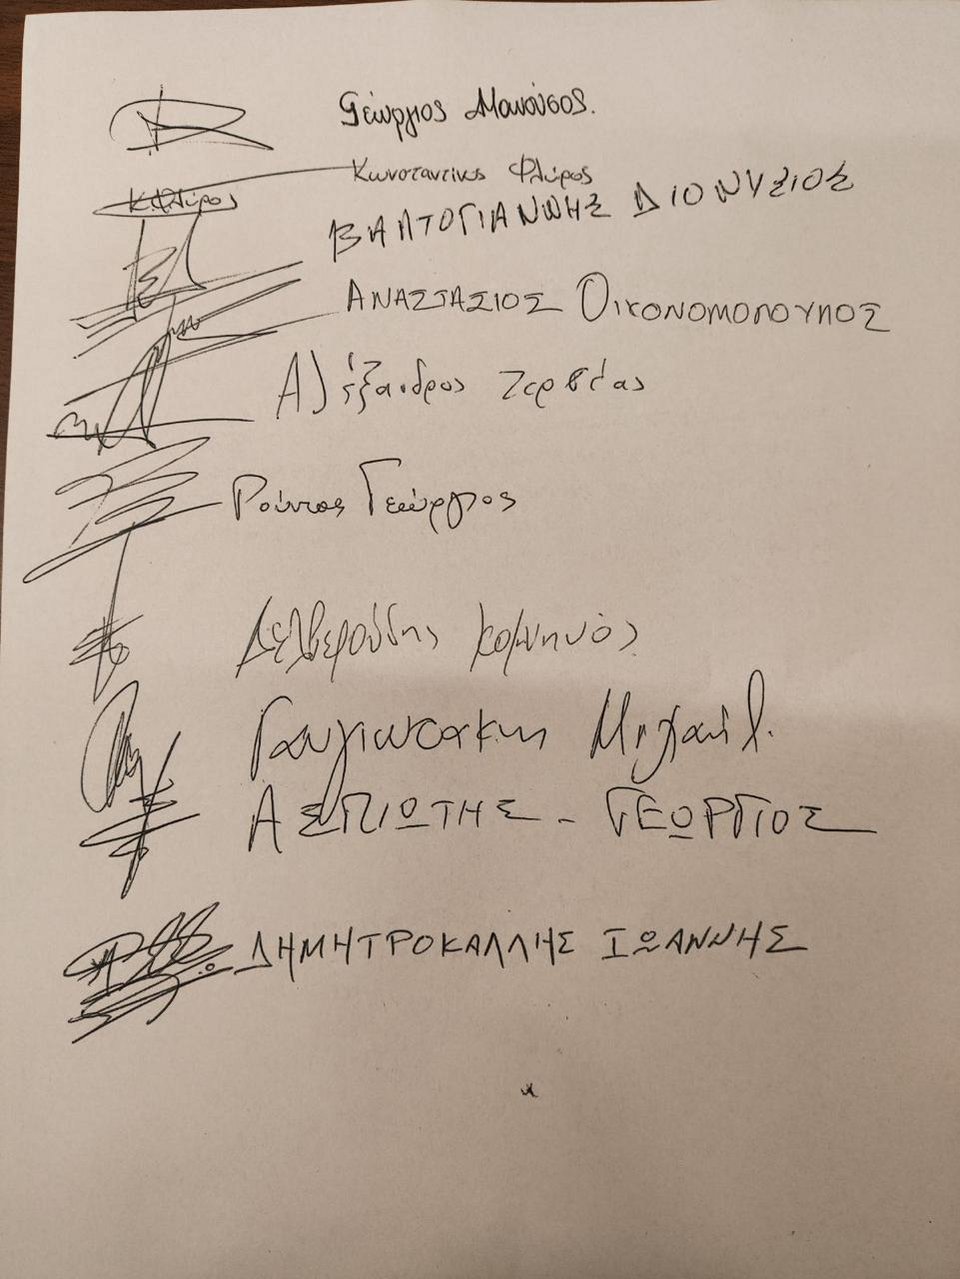 Γεώργιος Μανούσος.
Κωνσταντίνος Φλώρος
Κ.Φλώρος
ΒΑΛΤΟΓΙΑΝΝΗΣ ΔΙΟΝΥΣΙΟΣ
ΑΝΑΣΤΑΣΙΟΣ ΟΙΚΟΝΟΜΟΠΟΥΛΟΣ
Αλέξανδρος
Ρούντος Γεώργιος
Δελβερούδης Κομνηνός
Γαυγιωτάκης Μιχαήλ.
ΑΣΠΙΩΤΗΣ - ΓΕΩΡΓΙΟΣ
ΔΗΜΗΤΡΟΚΑΛΛΗΣ ΙΩΑΝΝΗΣ